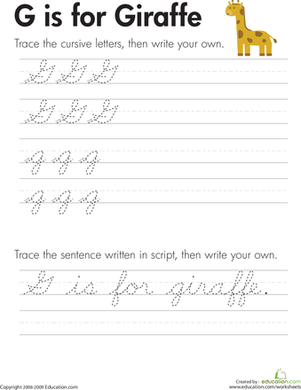 G is for Giraffe
Trace the cursive letters, then write your own.
G G G
G G G
g g g
g g g
Trace the sentence written in script, then write your own.
G is for giraffe.
Copyright 2008-2009 Education.com
Created by: education.com
www.education.com/worksheets